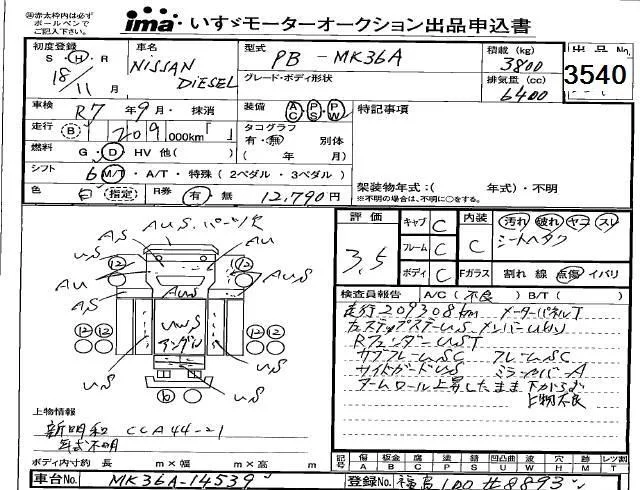 ㊟赤太枠内は必ず
ボールペンで
ご記入下さい。
ima いすゞモーターオークション出品申込書
初度登録
S・H・R
18/11月
車名
NISSAN DIESEL
型式
PB - MK36A
グレード・ボディ形状
積載 (kg)
3800
排気量 (cc)
6400
出品 No.
3540
車検 R7年9月・抹消
装備 AC PS PW
特記事項
走行 B 209,000km「 」
タコグラフ
有・無 別体
( 年 月)
燃料 G・D・HV 他( )
シフト 6 M/T・A/T・特殊(2ペダル・3ペダル)
色 白 (指定) R券 有・無 12,790円
架装物年式:( 年式)・不明
※不明の場合は、不明に○をする。
評価
3.5
キャブ C
フレーム C
ボディ C
内装 C
汚れ 破れ ヤコ スレ
シートヘタク
Fガラス 割れ 線 点傷 イバリ
検査員報告 A/C(不良) B/T( )
走行209308km メーターパネルT
カステップステーUS メンバーUW
RフェンダーUST
サブフレームSC フレームSC
サイドガードUS ミラーカバーA
アームロール上昇したまま下がらず
上物不良
AU.S.パーツ欠
AS
US
AU
12
12
AU
AS
US
AUS
UWS
アングル
12
12
12
12
US
US
6
上物情報
新明和 CCA44-21
年式不明
ボディ内寸約 長 m×幅 m×高 m
記号 傷 A 板金 B 腐 C 塗 P 錆 S 凹凸曲 U 波 W 穴 H 跡 M レツ割 T
車台No. MK36A-14539
登録No. 福島 100 せ 8893